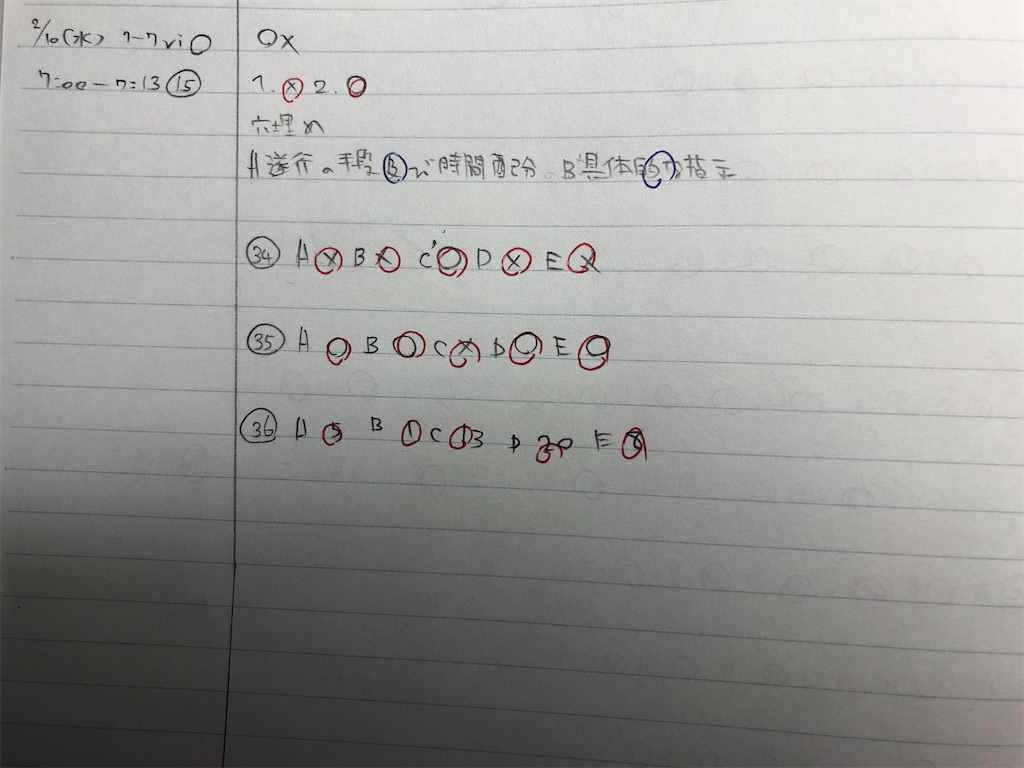 2/10(水) 7-7 vi ○
7:00-7:13 ⑮
○×
1. × 2. ○
穴埋め
A遂行の手段及び時間配分。B具体的な指示
㉞ A × B × C ○ D × E ×
㉟ A ○ B ○ C × D ○ E ○
㊱ A 5 B 1 C 13 D 20 E 8